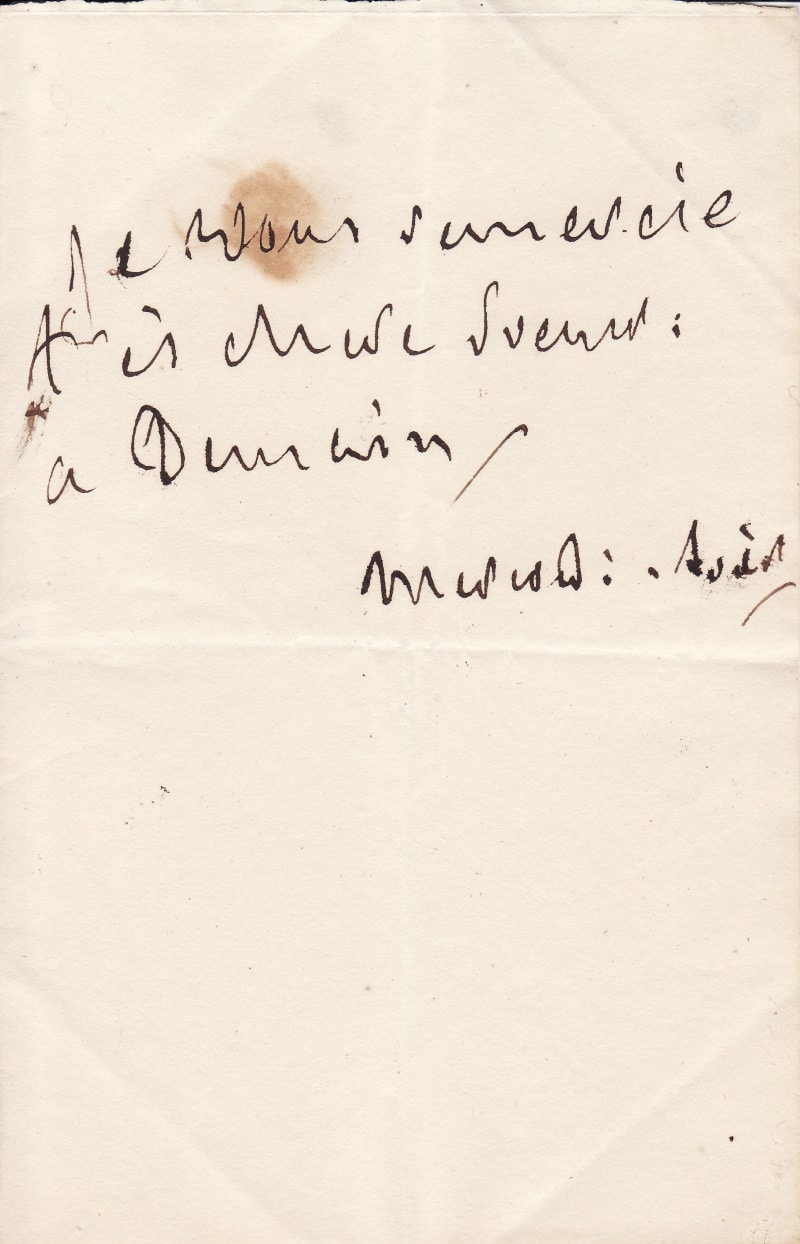 Je vous remercie
très chère Soeur.
a Demain
Mercredi. soir